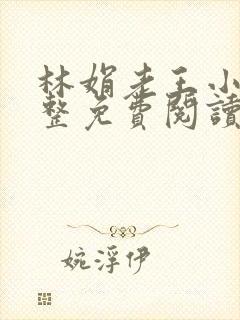 林娟老王小
整免費閱讀
婉浮伊